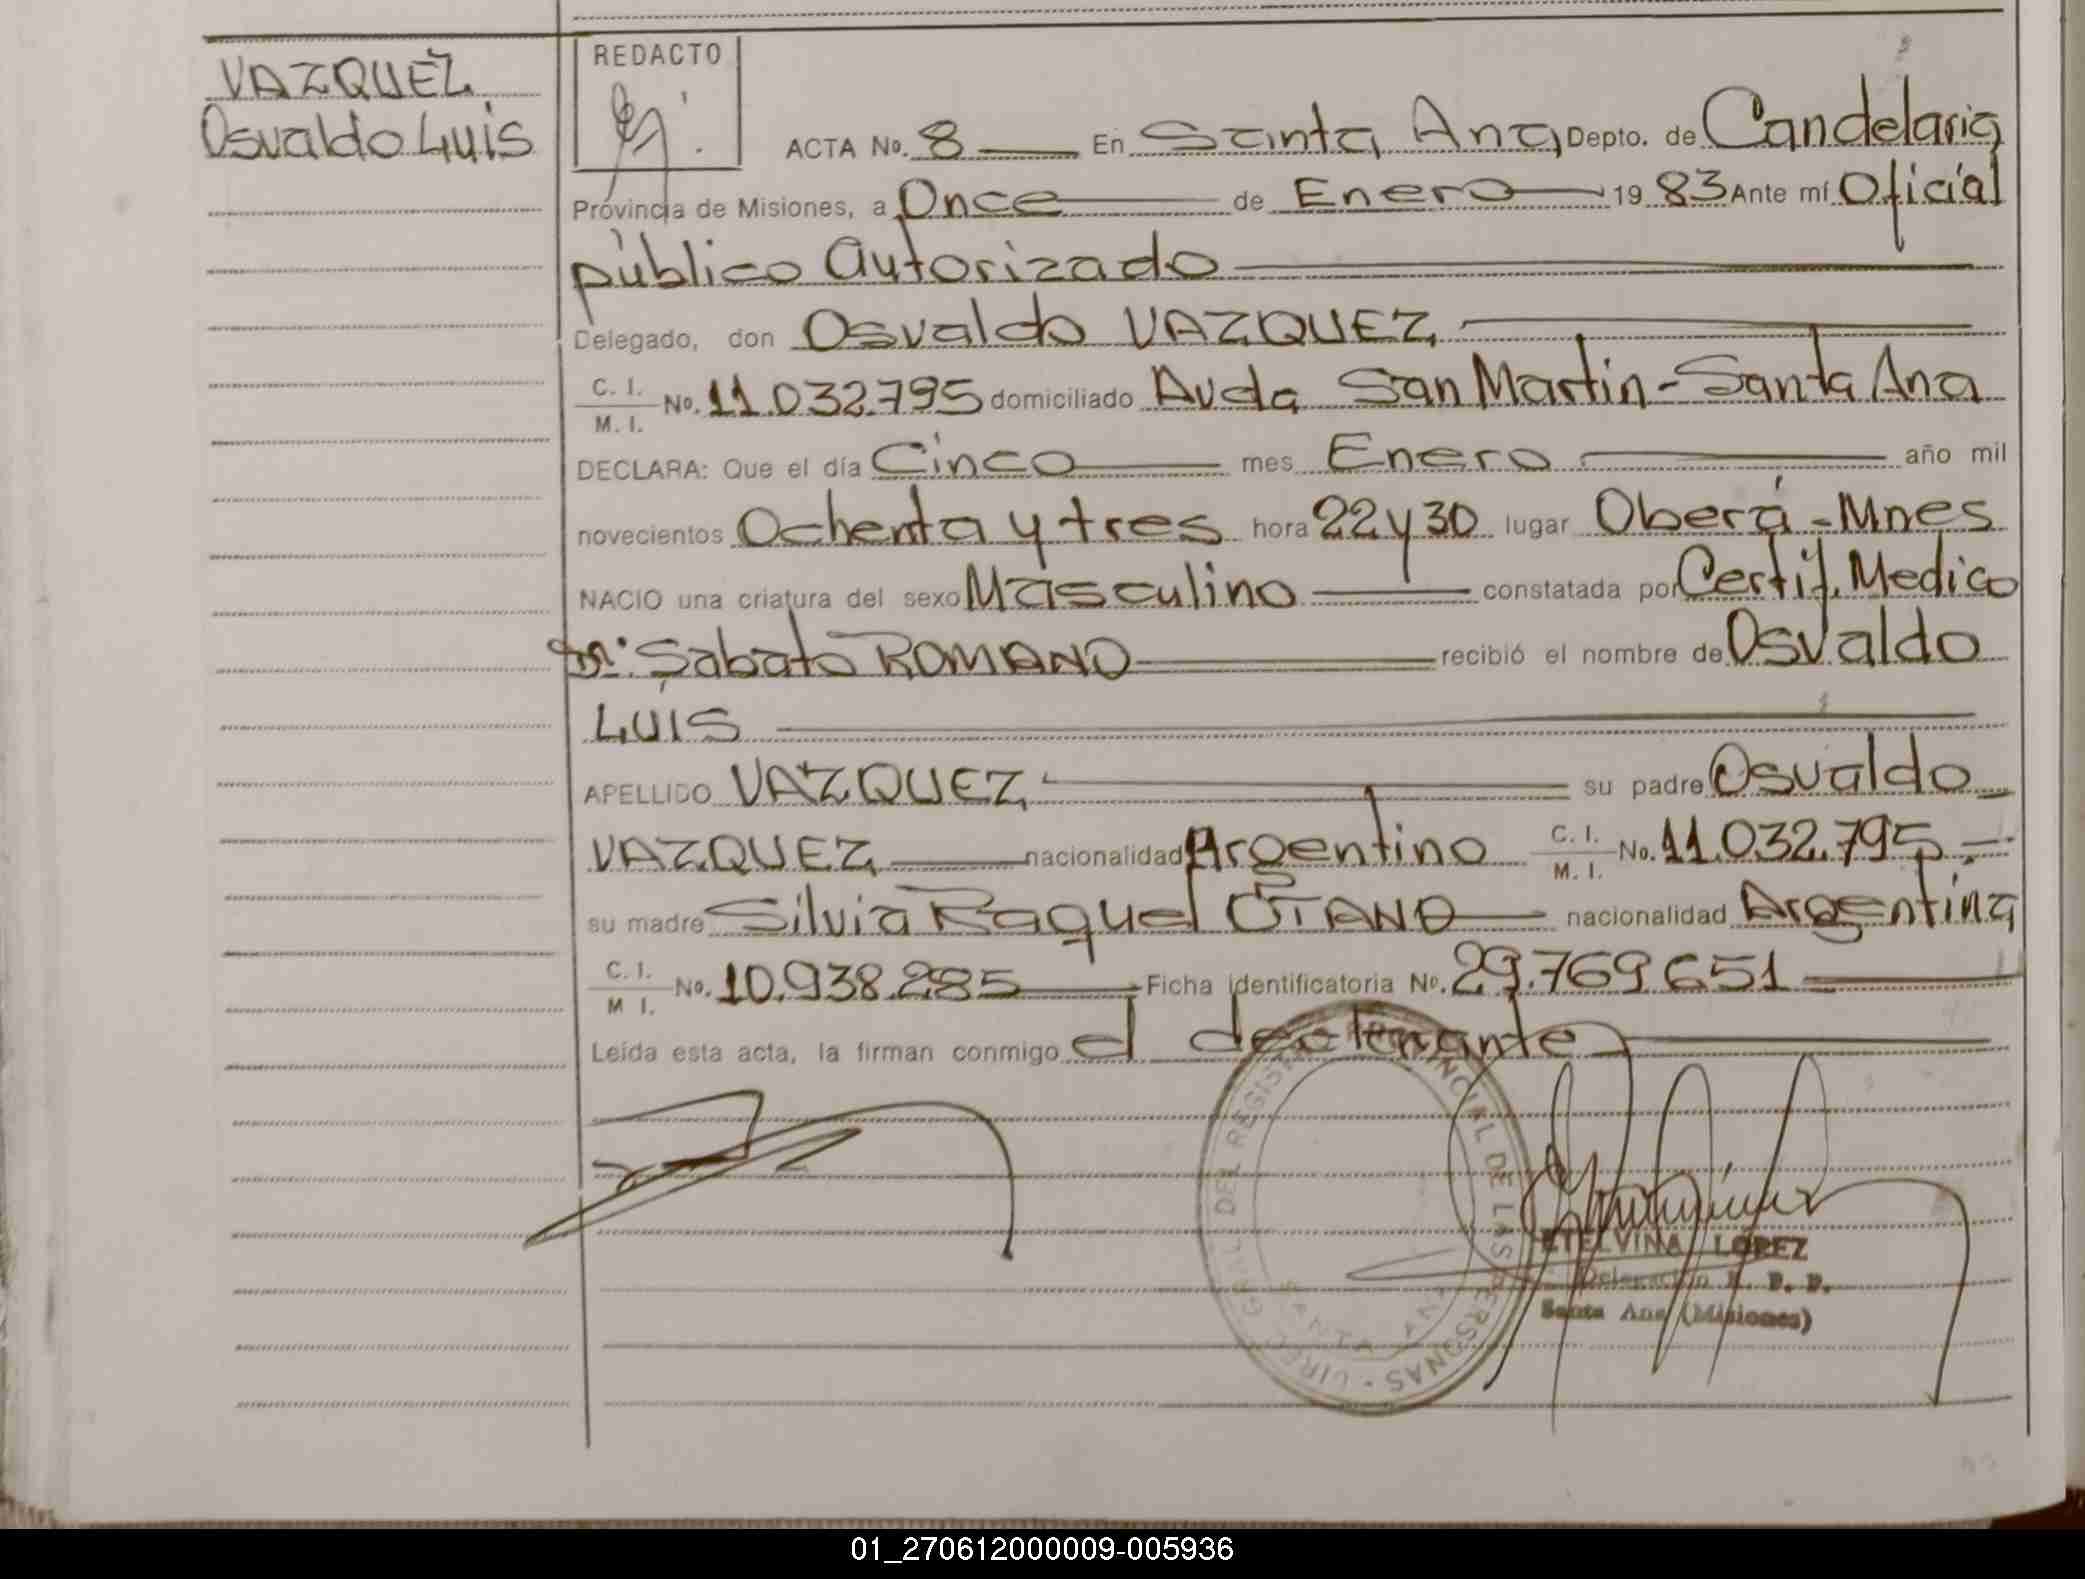 VAZQUEZ
Osvaldo Luis
REDACTO
ACTA No. 8 En Santa Ana Depto. de Candelaria
Provincia de Misiones, a Once de Enero 19 83 Ante mí Oficial
público Autorizado
Delegado, don Osvaldo VAZQUEZ
C. I. / M. I. No. 11.032.795 domiciliado Avda San Martin - Santa Ana
DECLARA: Que el día Cinco mes Enero año mil
novecientos Ochenta y tres hora 22 y 30 lugar Oberá - Mnes
NACIO una criatura del sexo Masculino constatada por Certif. Medico
Dr. Sabato ROMANO recibió el nombre de Osvaldo
LUIS
APELLIDO VAZQUEZ su padre Osvaldo
VAZQUEZ nacionalidad Argentino C. I. / M. I. No. 11.032.795.-
su madre Silvia Raquel OTANO nacionalidad Argentina
C. I. / M I. No. 10.938.285 Ficha identificatoria No. 29.769.651
Leída esta acta, la firman conmigo el
DIREC. GRAL. DEL REGISTRO PROVINCIAL DE LAS PERSONAS
SANTA ANA
ETELVINA LOPEZ
Delegación R. P. P.
Santa Ana (Misiones)
01_270612000009-005936